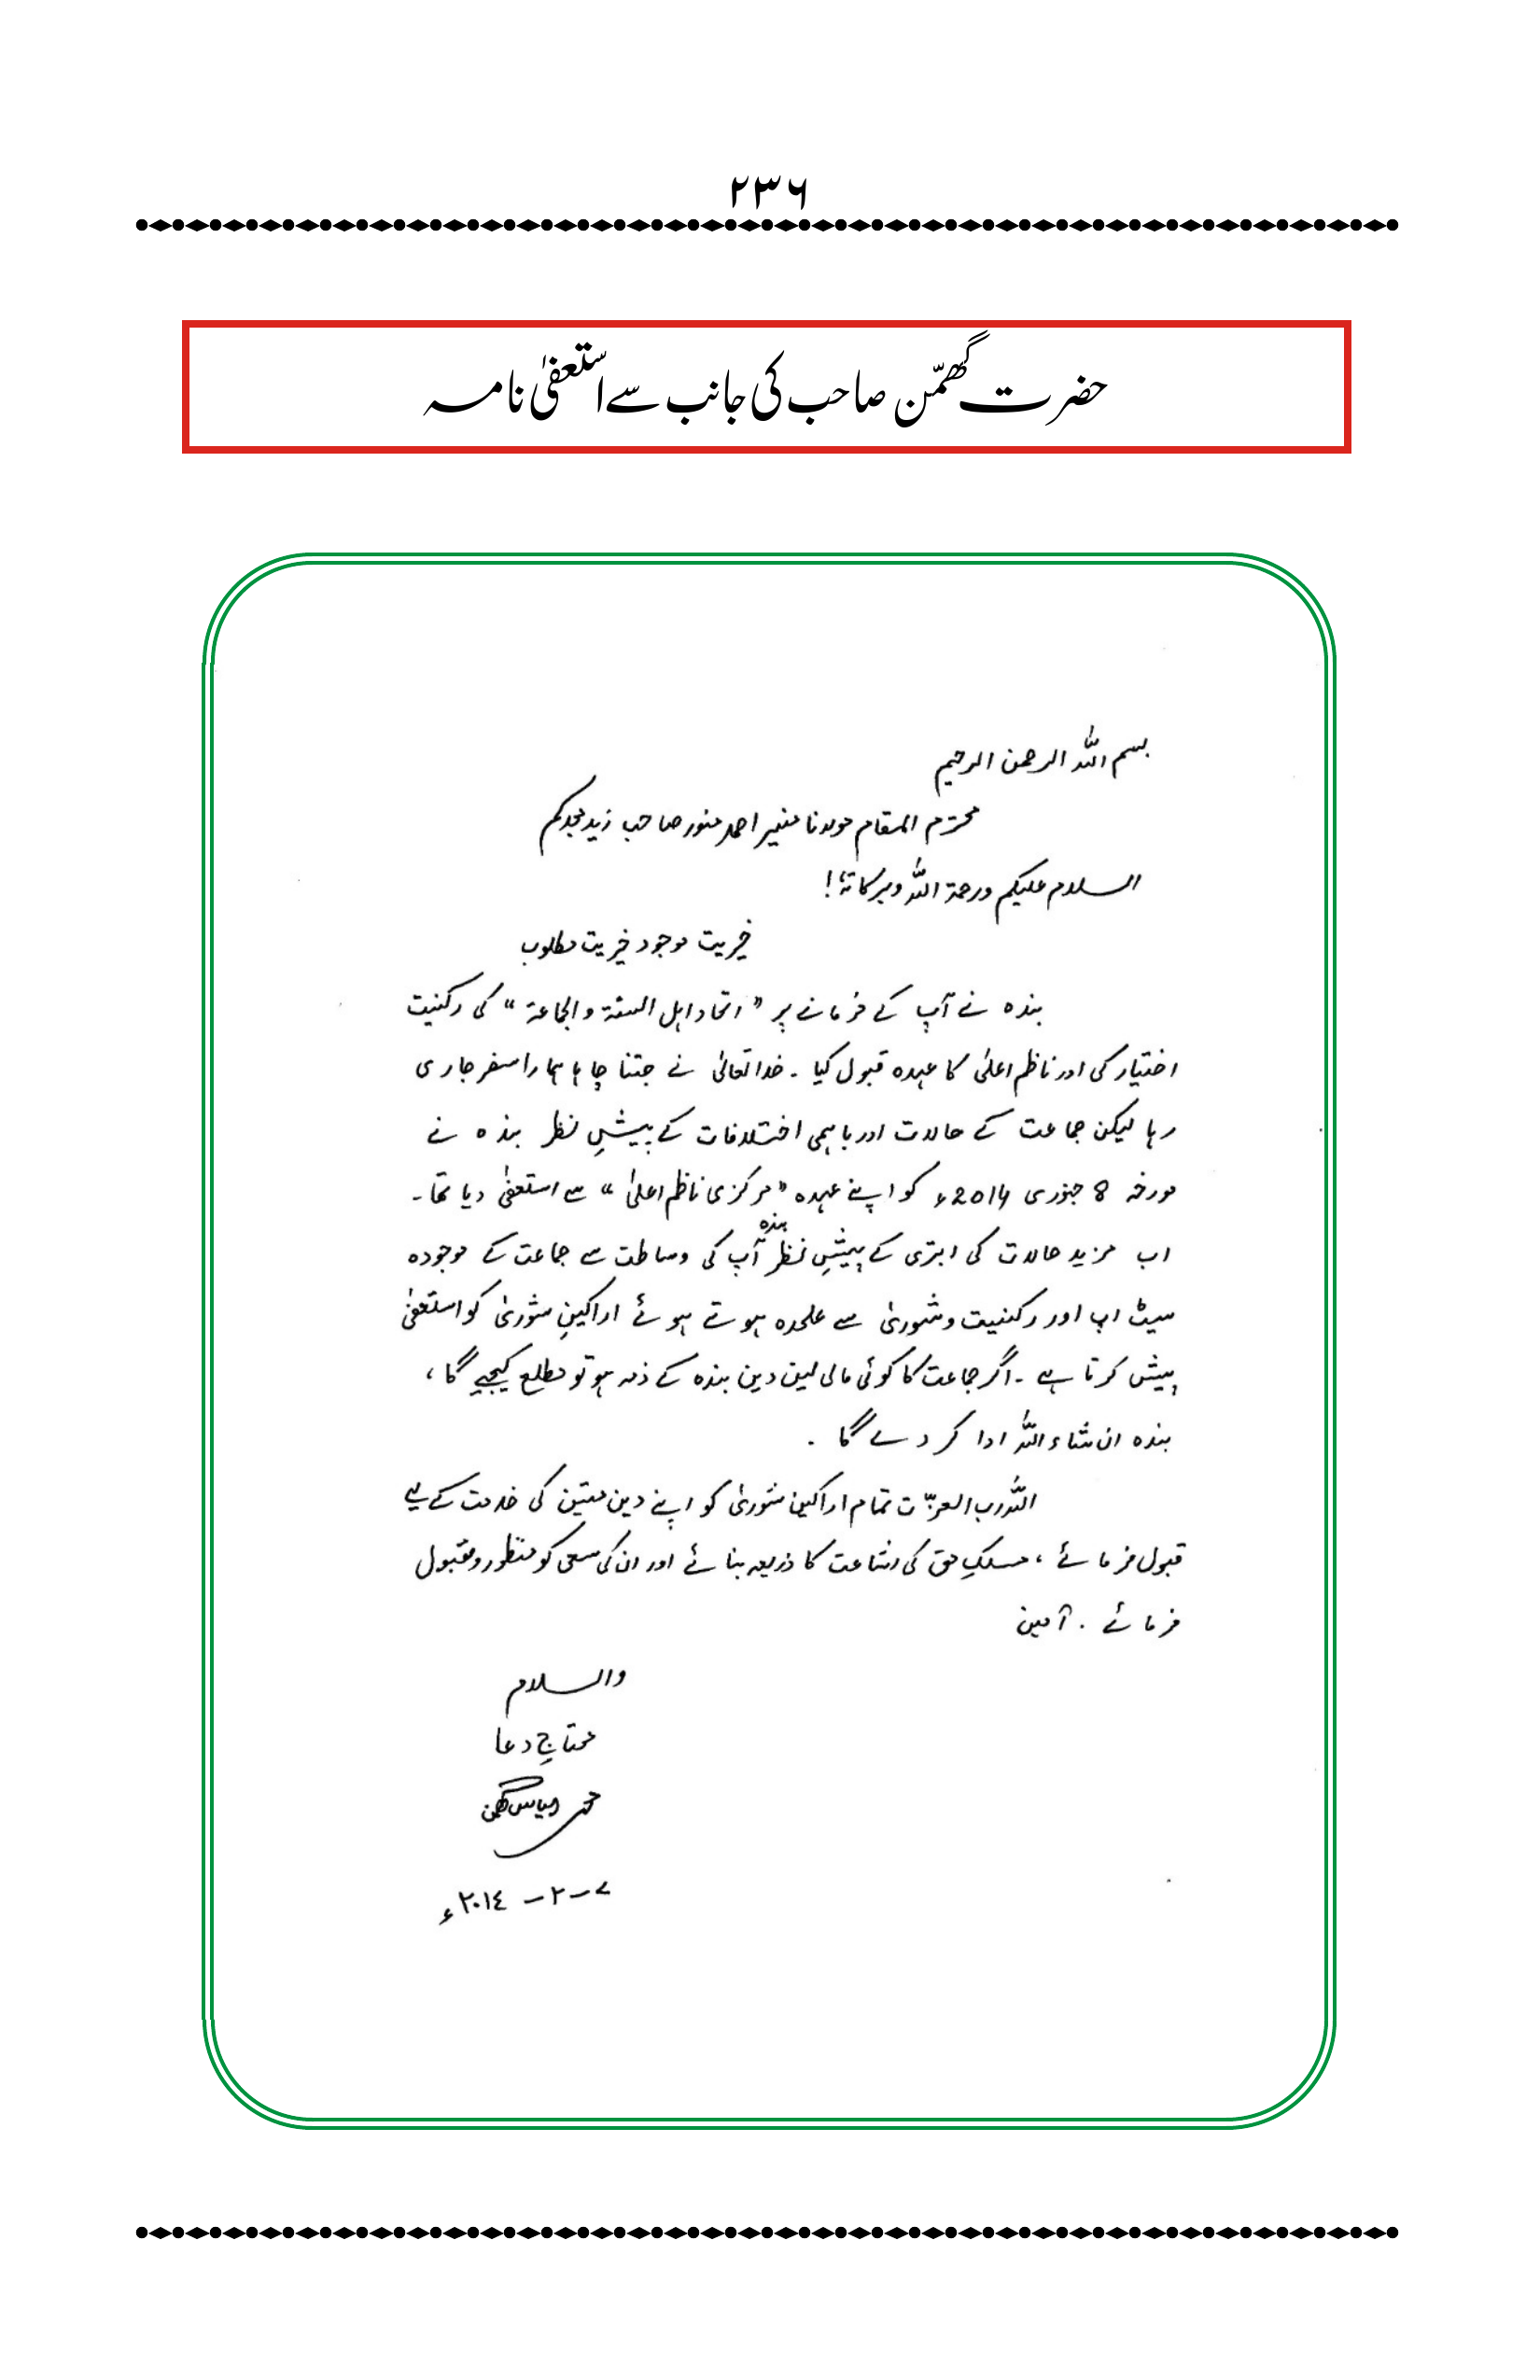 ۲۳۶
حضرت گھمّن صاحب کی جانب سے استعفیٰ نامہ
بسم اللہ الرحمن الرحیم
محترم المقام مولانا منیر احمد منور صاحب زید مجدکم
السلام علیکم ورحمۃ اللہ وبرکاتہٗ!
خیریت موجود خیریت مطلوب
بندہ نے آپ کے فرمانے پر "اتحاد اہل السنۃ والجماعۃ" کی رکنیت
اختیار کی اور ناظم اعلیٰ کا عہدہ قبول کیا ۔ خدا تعالیٰ نے جتنا چاہا ہمارا سفر جاری
رہا لیکن جماعت کے حالات اور باہمی اختلافات کے پیشِ نظر بندہ نے
مورخہ 8 جنوری 2014ء کو اپنے عہدہ "مرکزی ناظم اعلیٰ" سے استعفیٰ دیا تھا۔
اب مزید حالات کی ابتری کے پیشِ نظر بندہ آپ کی وساطت سے جماعت کے موجودہ
سیٹ اپ اور رکنیت وشوریٰ سے علحدہ ہوتے ہوئے اراکینِ شوریٰ کو استعفیٰ
پیش کرتا ہے ۔ اگر جماعت کا کوئی مالی لین دین بندہ کے ذمہ ہو تو مطلع کیجیے گا،
بندہ ان شاء اللہ ادا کر دے گا ۔
اللہ رب العزّت تمام اراکین شوریٰ کو اپنے دین متین کی خدمت کے لیے
قبول فرمائے، مسلکِ حق کی اشاعت کا ذریعہ بنائے اور ان کی سعی کو منظور ومقبول
فرمائے ۔ آمین
والسلام
محتاجِ دعا
محمد الیاس گھمن
۷-۲-۲۰۱٤ء